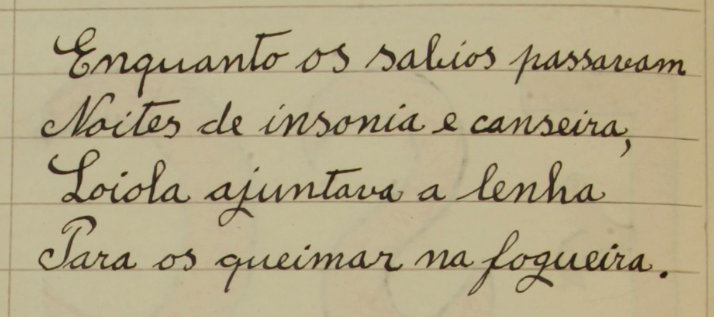 Enquanto os sabios passavam
Noites de insonia e canseira,
Loiola ajuntava a lenha
Para os queimar na fogueira.